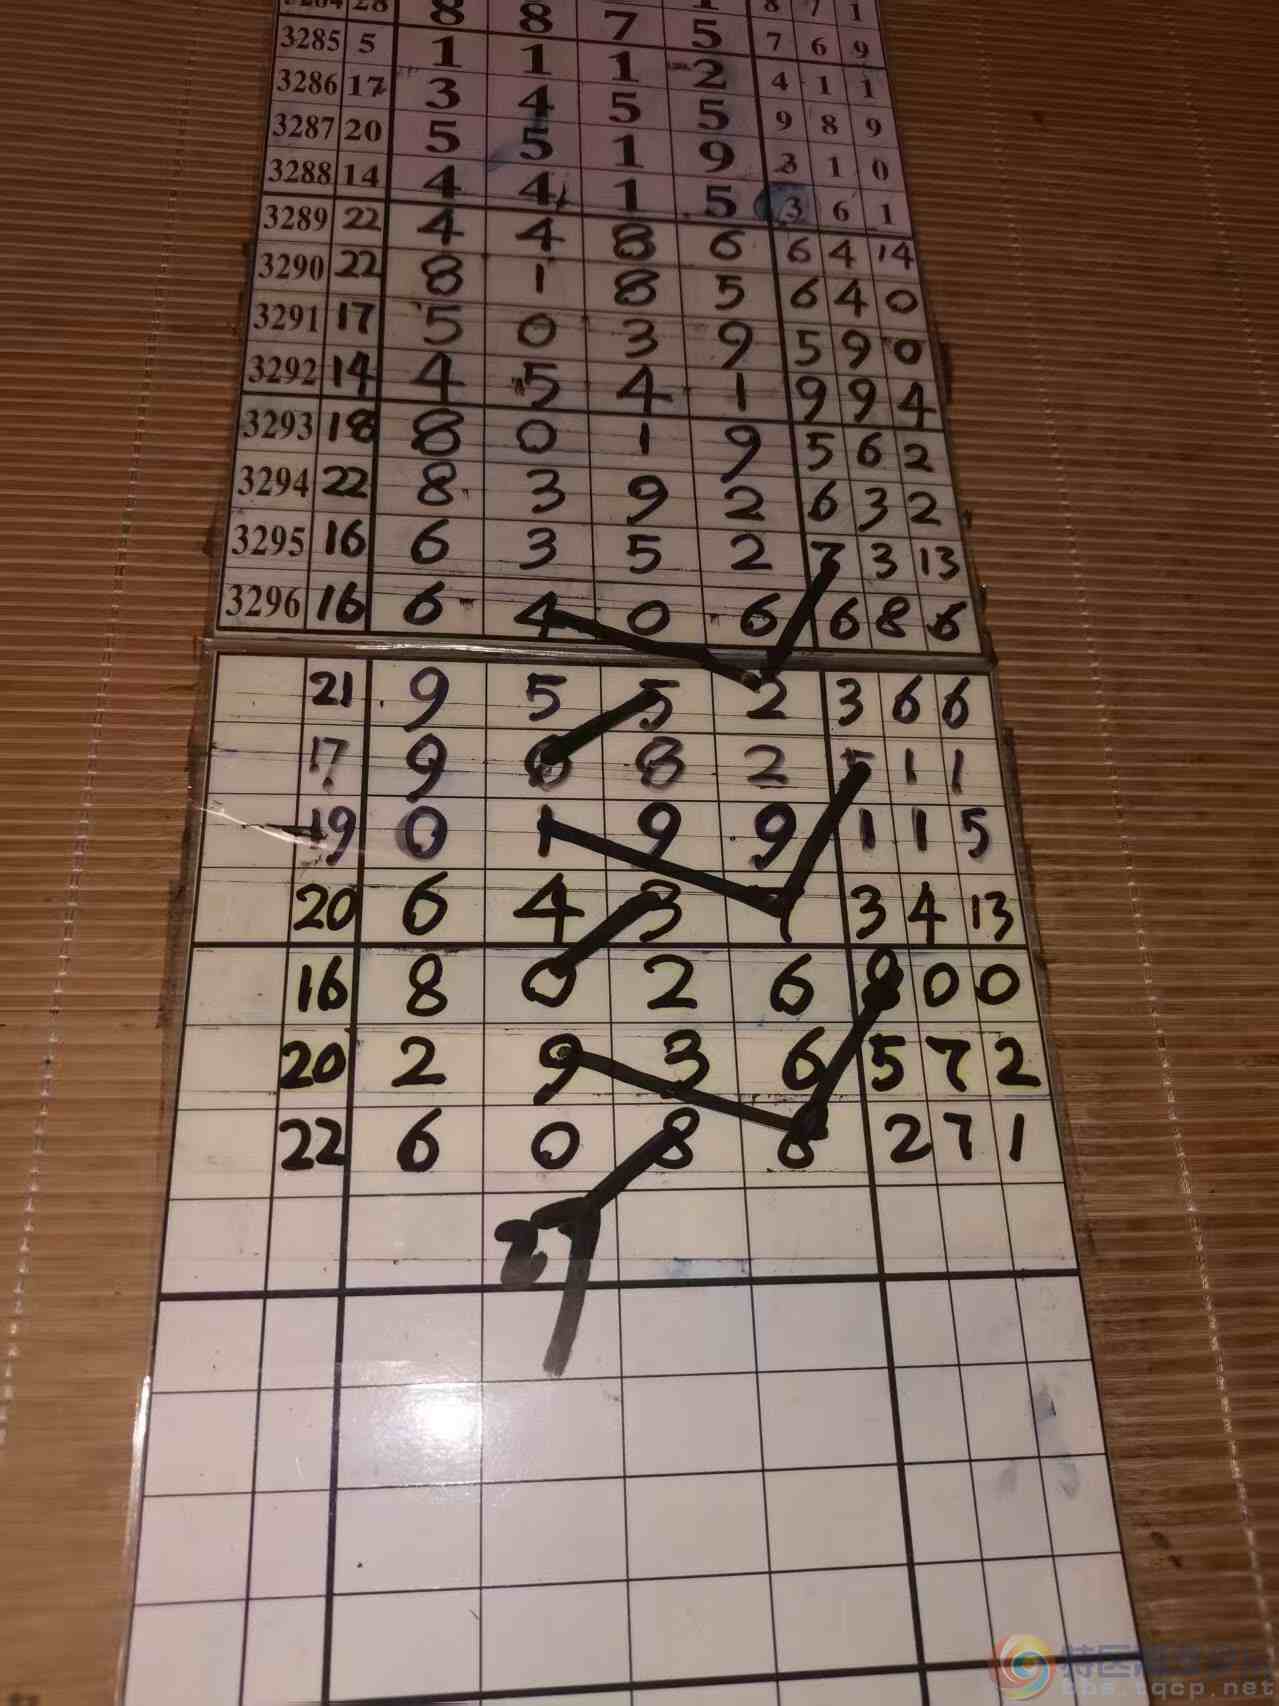 8 8 7 8 7 1
3285 5 1 1 1 5 7 6 9
3286 17 3 4 5 2 4 1 1
3287 20 5 5 1 5 9 8 9
3288 14 4 4 1 9 3 1 0
3289 22 4 4 8 5 3 6 1
3290 22 8 1 8 6 6 4 14
3291 17 5 0 3 5 6 4 0
3292 14 4 5 4 9 5 9 0
3293 18 8 0 1 1 9 9 4
3294 22 8 3 9 9 5 6 2
3295 16 6 3 5 2 6 3 2
3296 16 6 4 0 2 7 3 13
6 6 8 6
21 9 5 5 2 3 6 6
17 9 8 2 5 1 1
19 0 1 9 9 1 1 5
20 6 4 3 3 4 13
16 8 0 2 6 0 0
20 2 9 3 6 5 7 2
22 6 0 8 8 2 7 1
7
bbs.tqcp.net